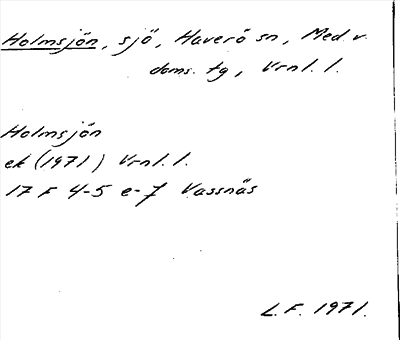 Holmsjön, sjö, Haverö sn, Med. v.
doms. tg, Vrnl. l.
Holmsjön
ek (1971) Vrnl. l.
17 F 4-5 e-7 Vassnäs
L.F. 1971.